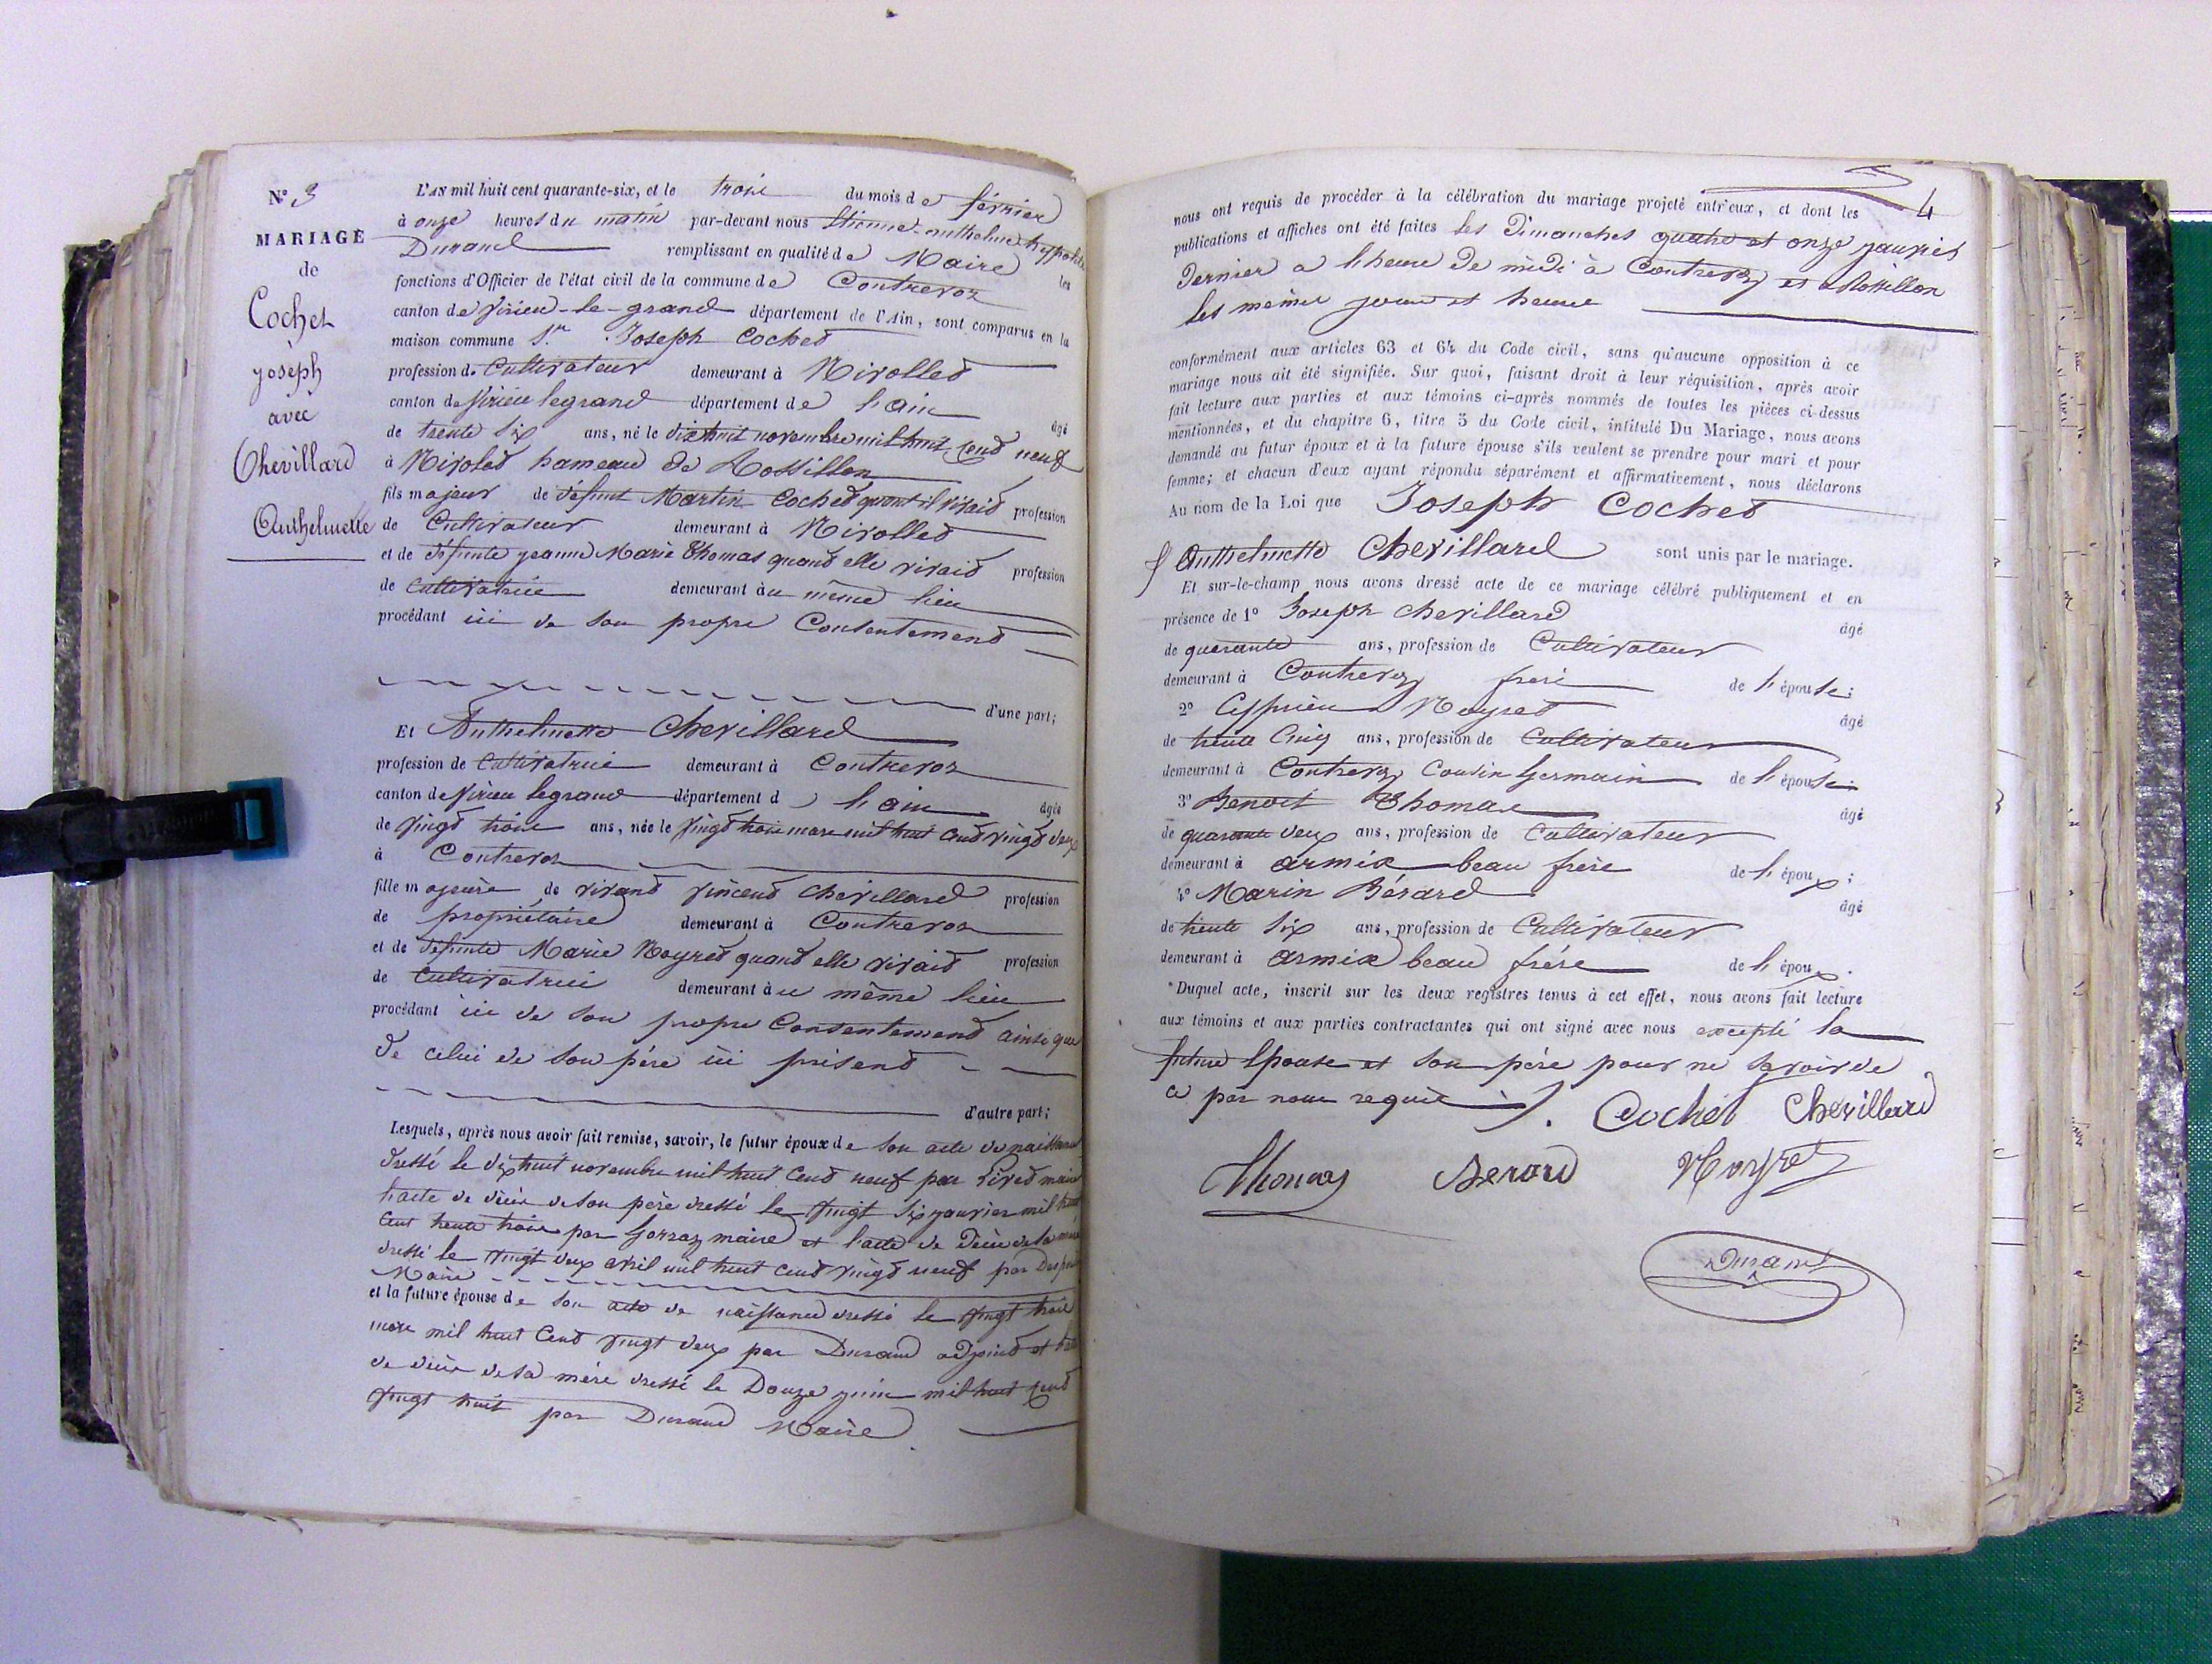 N° 3
MARIAGE
de
Cochet
joseph
avec
Chevillard
Anthelmette
L'AN mil huit cent quarante-six, et le trois du mois de février
à onze heures du matin par-devant nous Etienne anthelme hyppolite
Durand remplissant en qualité de Maire les
fonctions d'Officier de l'état civil de la commune de Contrevoz
canton de Virieu-le-grand département de l'Ain, sont comparus en la
maison commune Sr. Joseph Cochet
profession de Cultivateur demeurant à Nivollet
canton de Virieu legrand département de l'ain âgé
de trente six ans, né le dix huit novembre mil huit cent neuf
à Nivolet hameau de Rossillon
fils majeur de défunt Martin Cochet quand il vivait profession
de Cultivateur demeurant à Nivollet
et de défunte jeanne Marie Thomas quand elle vivait profession
de cultivatrice demeurant au même lieu
procédant ici de son propre Consentement
d'une part;
Et Anthelmette Chevillard
profession de cultivatrice demeurant à Contrevoz
canton de Virieu legrand département d l'ain âgée
de vingt trois ans, née le vingt trois mars mil huit cent vingt deux
à Contrevoz
fille majeure de vivant vincent chevillard profession
de propriétaire demeurant à Contrevoz
et de défunte Marie Noyret quand elle vivait profession
de Cultivatrice demeurant au même lieu
procédant ici de son propre Consentement ainsi que
de celui de son père ici présent
d'autre part;
Lesquels, après nous avoir fait remise, savoir, le futur époux de son acte de naissance
dressé le dix huit novembre mil huit cent neuf par maire
l'acte de décès de son père dressé le vingt six janvier mil huit
cent trente trois par Gorraz maire et l'acte de décès de sa mère
dressé le vingt deux avril mil huit cent vingt neuf par
Maire
et la future épouse de son acte de naissance dressé le vingt trois
mars mil huit cent vingt deux par Durand adjoint et l'acte
de décès de sa mère dressé le Douze juin mil huit cent
vingt huit par Durand Maire
4
nous ont requis de procéder à la célébration du mariage projeté entr'eux, et dont les
publications et affiches ont été faites les Dimanches quatre et onze janvier
dernier a l'heure de midi à Contrevoz et a Rossillon
les mêmes jours et heure
conformément aux articles 63 et 64 du Code civil, sans qu'aucune opposition à ce
mariage nous ait été signifiée. Sur quoi, faisant droit à leur réquisition, après avoir
fait lecture aux parties et aux témoins ci-après nommés de toutes les pièces ci-dessus
mentionnées, et du chapitre 6, titre 5 du Code civil, intitulé Du Mariage, nous avons
demandé au futur époux et à la future épouse s'ils veulent se prendre pour mari et pour
femme; et chacun d'eux ayant répondu séparément et affirmativement, nous déclarons
Au nom de la Loi que Joseph Cochet
& Anthelmette Chevillard sont unis par le mariage.
Et sur-le-champ nous avons dressé acte de ce mariage célébré publiquement et en
présence de 1° Joseph chevillard âgé
de quarante ans, profession de Cultivateur
demeurant à Contrevoz frere de l'épouse;
2° Cyprien Noyret âgé
de trente cinq ans, profession de Cultivateur
demeurant à Contrevoz Cousin Germain de l'épouse;
3° Benoit Thomas âgé
de quarante deux ans, profession de Cultivateur
demeurant à armix beau frère de l'époux;
4° Marin Bérard âgé
de trente six ans, profession de Cultivateur
demeurant à armix beau frère de l'époux.
Duquel acte, inscrit sur les deux registres tenus à cet effet, nous avons fait lecture
aux témoins et aux parties contractantes qui ont signé avec nous excepté la
future Epouse et son père pour ne savoir de
ce par nous requis
J. Cochet Chevillard
Thomas Berard Noyret
Durand